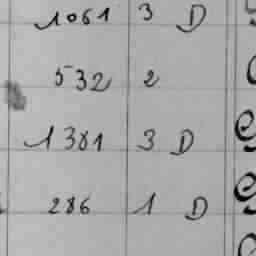 1061 3 D
532 2
1381 3 D
286 1 D